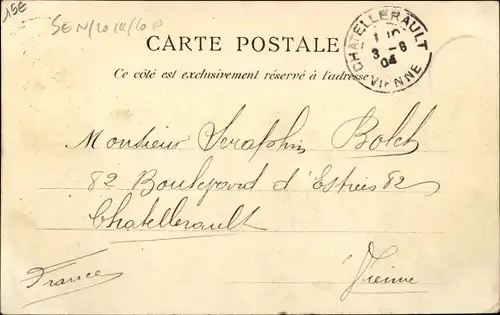 15€
CARTE POSTALE
Ce côté est exclusivement réservé à l'adresse
CHATELLERAULT
3 - 8
04
VIENNE
Monsieur Seraphin Bolch
82 Boulevard d'Estrées 82
Chatellerault
France
Vienne